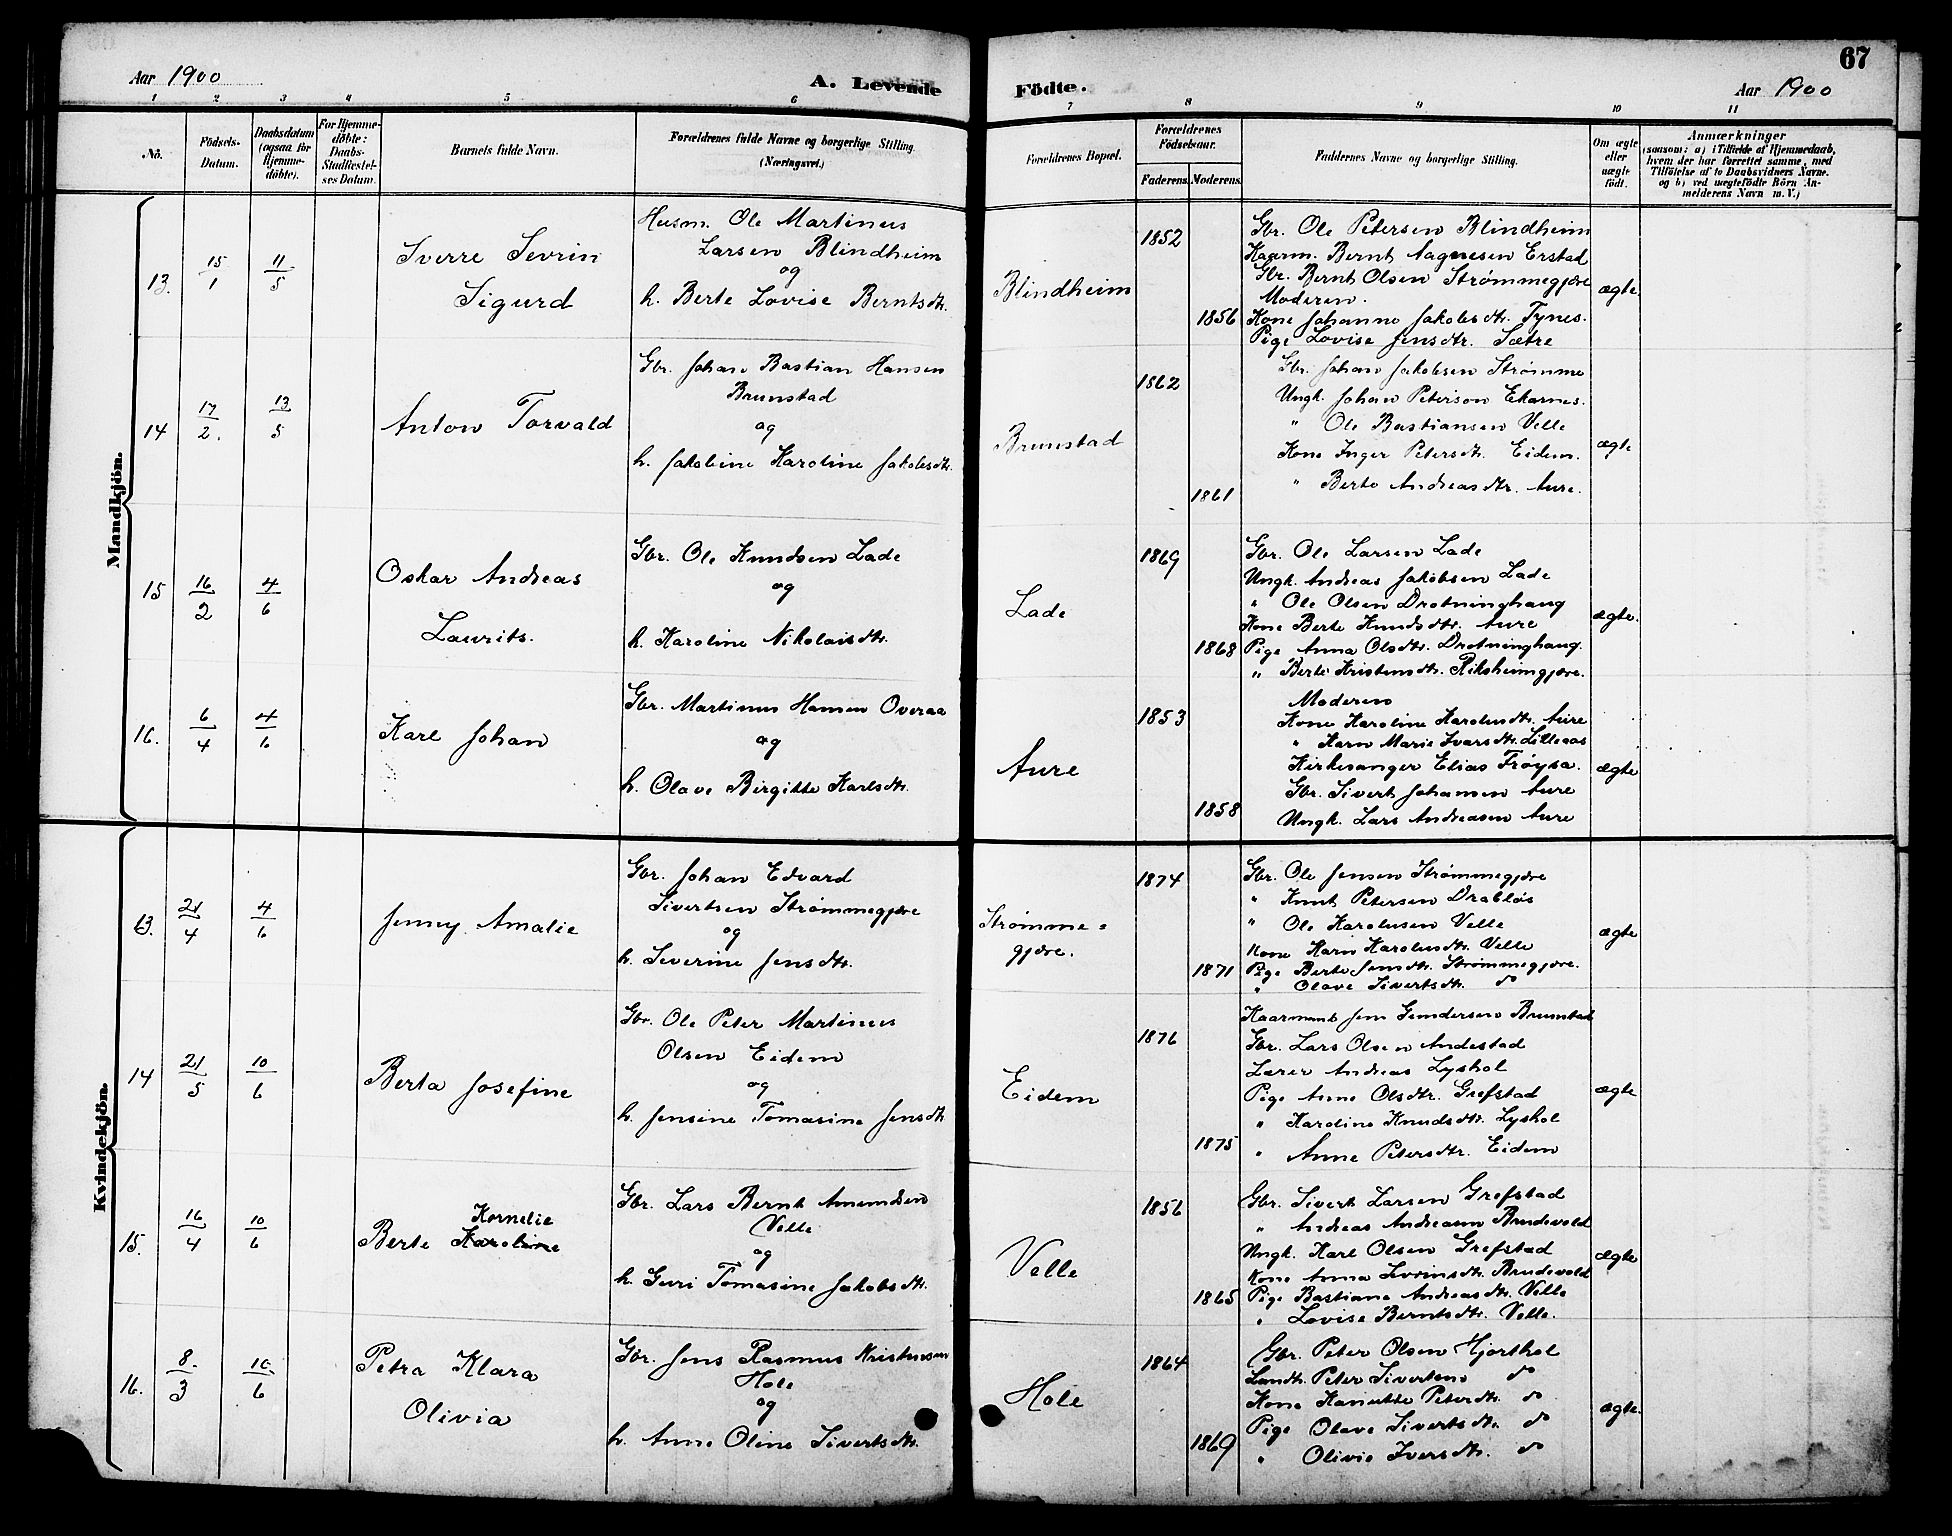 67
Aar 1900
A. Levende Födte.
Aar 1900
1 2 3 4 5 6 7 8 9 10 11
No.
Födsels-Datum.
Daabsdatum (ogsaa for Hjemme-döbte).
For Hjemme-döbte: Daabs-Stadfæstel-ses Datum.
Barnets fulde Navn.
Forældrenes fulde Navne og borgerlige Stilling. (Næringsvei.)
Forældrenes Bopæl.
Forældrenes Födselsaar.
Faderens. Moderens.
Faddernes Navne og borgerlige Stilling.
Om ægte eller uægte födt.
Anmærkninger
(saasom: a) i Tilfælde af Hjemmedaab,
hvem der har forrettet samme, med
Tilföielse af to Daabsvidners Navne.
og b) ved uægtefödte Börn An-
melderens Navn m. V.)
Mandkjön.
13. 15/1 11/5
Sverre Sevrin
Sigurd
Husm. Ole Martinus
Larsen Blindheim
og
h. Berte Lovise Berntsdtr.
Blindheim
1852
1856
Gbr. Ole Petersen Blindheim
Kaarm. Bernt Aagnesen Erstad
Gbr. Bernt Olsen Strømmegjære
Moderen.
Kone Johanne Jakobsdtr. Tynes.
Pige Lovise Jensdtr. Sætre
ægte
14 17/2. 13/5
Anton Torvald
Gbr. Johan Bastian Hansen
Brunstad
og
h. Jakobine Karoline Jakobsdtr.
Brunstad
1862
1861
Gbr. Johan Jakobsen Strømme
Ungk. Johan Peterson Ekornes.
" Ole Bastiansen Velle
Kone Inger Petersdtr. Eidem.
" Berte Andreasdtr. Aure.
ægte
15 16/2 4/6
Oskar Andreas
Laurits.
Gbr. Ole Knudsen Lade
og
h. Karoline Nikolaisdtr.
Lade
1869
1868
Gbr. Ole Larsen Lade
Ungk. Andreas Jakobsen Lade
" Ole Olsen Drotninghaug
Kone Berte Knudsdtr. Aure
Pige Anna Olsdtr. Drotninghaug.
" Berte Kristensdtr. Riksheimgjære.
ægte.
16. 6/4 4/6
Karl Johan
Gbr. Martinus Hansen Overaa
og
h. Olave Birgitte Karlsdtr.
Aure
1853
1858
Moderen
Kone Karoline Karolusdtr. Aure
" Karn Marie Ivarsdtr. Lilleaas
Kirkesanger Elias Frøysa.
Gbr. Sivert Johansen Aure
Ungk. Lars Andreasen Aure
ægte
Kvindekjön.
13. 21/4 4/6
Jenny Amalie
Gbr. Johan Edvard
Sivertsen Strømmegjære
og
h. Severine Jensdtr.
Strømme-
gjære.
1874
1871
Gbr. Ole Jensen Strømmegjære
" Knut Petersen Drabløs
" Ole Karolusen Velle
Kone Karn Karolusdtr. Velle
Pige Berte Jensdtr. Strømmegjære.
" Olave Sivertsdtr. do
ægte
14 21/5 10/6
Berta Josefine
Gbr. Ole Peter Martinus
Olsen Eidem
og
h. Jensine Tomasine Jensdtr
Eidem
1876
1875
Kaarmand Jens Gundersen Brunstad
Gbr. Lars Olsen Andestad
Lærer Andreas Lyshol
Pige Anne Olsdtr. Grefstad
" Karoline Knudsdtr. Lyshol
" Anne Petersdtr. Eidem
ægte
15. 16/4 10/6
Kornelie
Berte Karoline
Gbr. Lars Bernt Amundsen
Velle
og
h. Guri Tomasine Jakobsdtr.
Velle
1856
1865
Gbr. Sivert Larsen Grefstad
" Andreas Andreasen Brudevold
Ungk. Karl Olsen Grefstad
Kone Anna Sevrinsdtr. Brudevold
Pige Bastiane Andreasdtr. Velle
" Lovise Berntsdtr. Velle.
ægte
16. 8/3 10/6
Petra Klara
Olivia
Gbr. Jens Rasmus Kristensen
Hole
og
h. Anne Oline Sivertsdtr.
Hole
1864
1869
Gbr. Peter Olsen Hjorthol
Landh. Peter Sivertsen do
Kone Kanutte Petersdtr. do
Pige Olave Sivertsdtr. do
" Olivie Iversdtr. do
ægte.